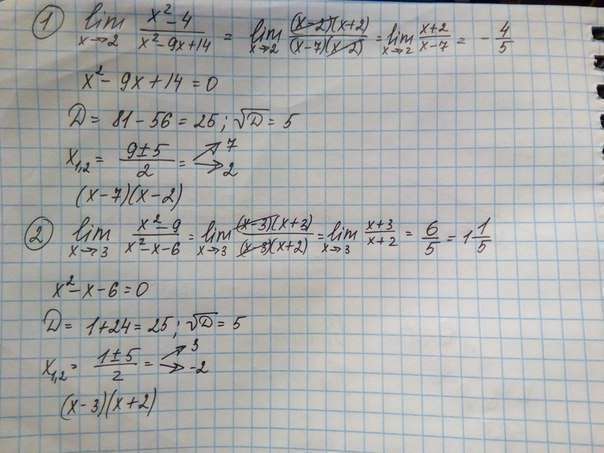 ① lim x→2 (x²-4)/(x²-9x+14) = lim x→2 ((x-2)(x+2))/((x-7)(x-2)) = lim x→2 (x+2)/(x-7) = -4/5
x²-9x+14=0
D= 81-56=25; √D=5
x₁,₂= (9±5)/2 = 7 2
(x-7)(x-2)
② lim x→3 (x²-9)/(x²-x-6) = lim x→3 ((x-3)(x+3))/((x-3)(x+2)) = lim x→3 (x+3)/(x+2) = 6/5 = 1 1/5
x²-x-6=0
D= 1+24=25; √D=5
x₁,₂= (1±5)/2 = 3 -2
(x-3)(x+2)